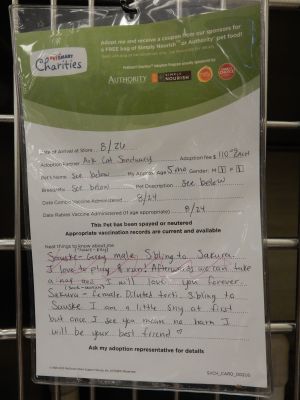 PETSMART
Charities
Adopt me and receive a coupon from our sponsors for
a FREE bag of Simply Nourish™ or Authority® pet food!
AUTHORITY
SIMPLY
NOURISH
Date of Arrival at Store 8/26
Adoption Partner Ark Cat Sanctuary Adoption fee $ 110 each
Pet's Name See below My Approx. Age 5 mo Gender: M 1 F 1
Breed/Mix See below Pet Description See below
Date Combo Vaccine Administered 8/24
Date Rabies Vaccine Administered (if age appropriate) 8/24
This Pet has been spayed or neutered
Appropriate vaccination records are current and available
Neat things to know about me
Sauske - Grey male. Sibling to Sakura.
I love to play & run! Afterwards we can take
a nap and I will love you forever.
Sakura - female Diluted torti. Sibling to
Sauske I am a little shy at first
but once I see you mean no harm I
will be your best friend ♡
Ask my adoption representative for details